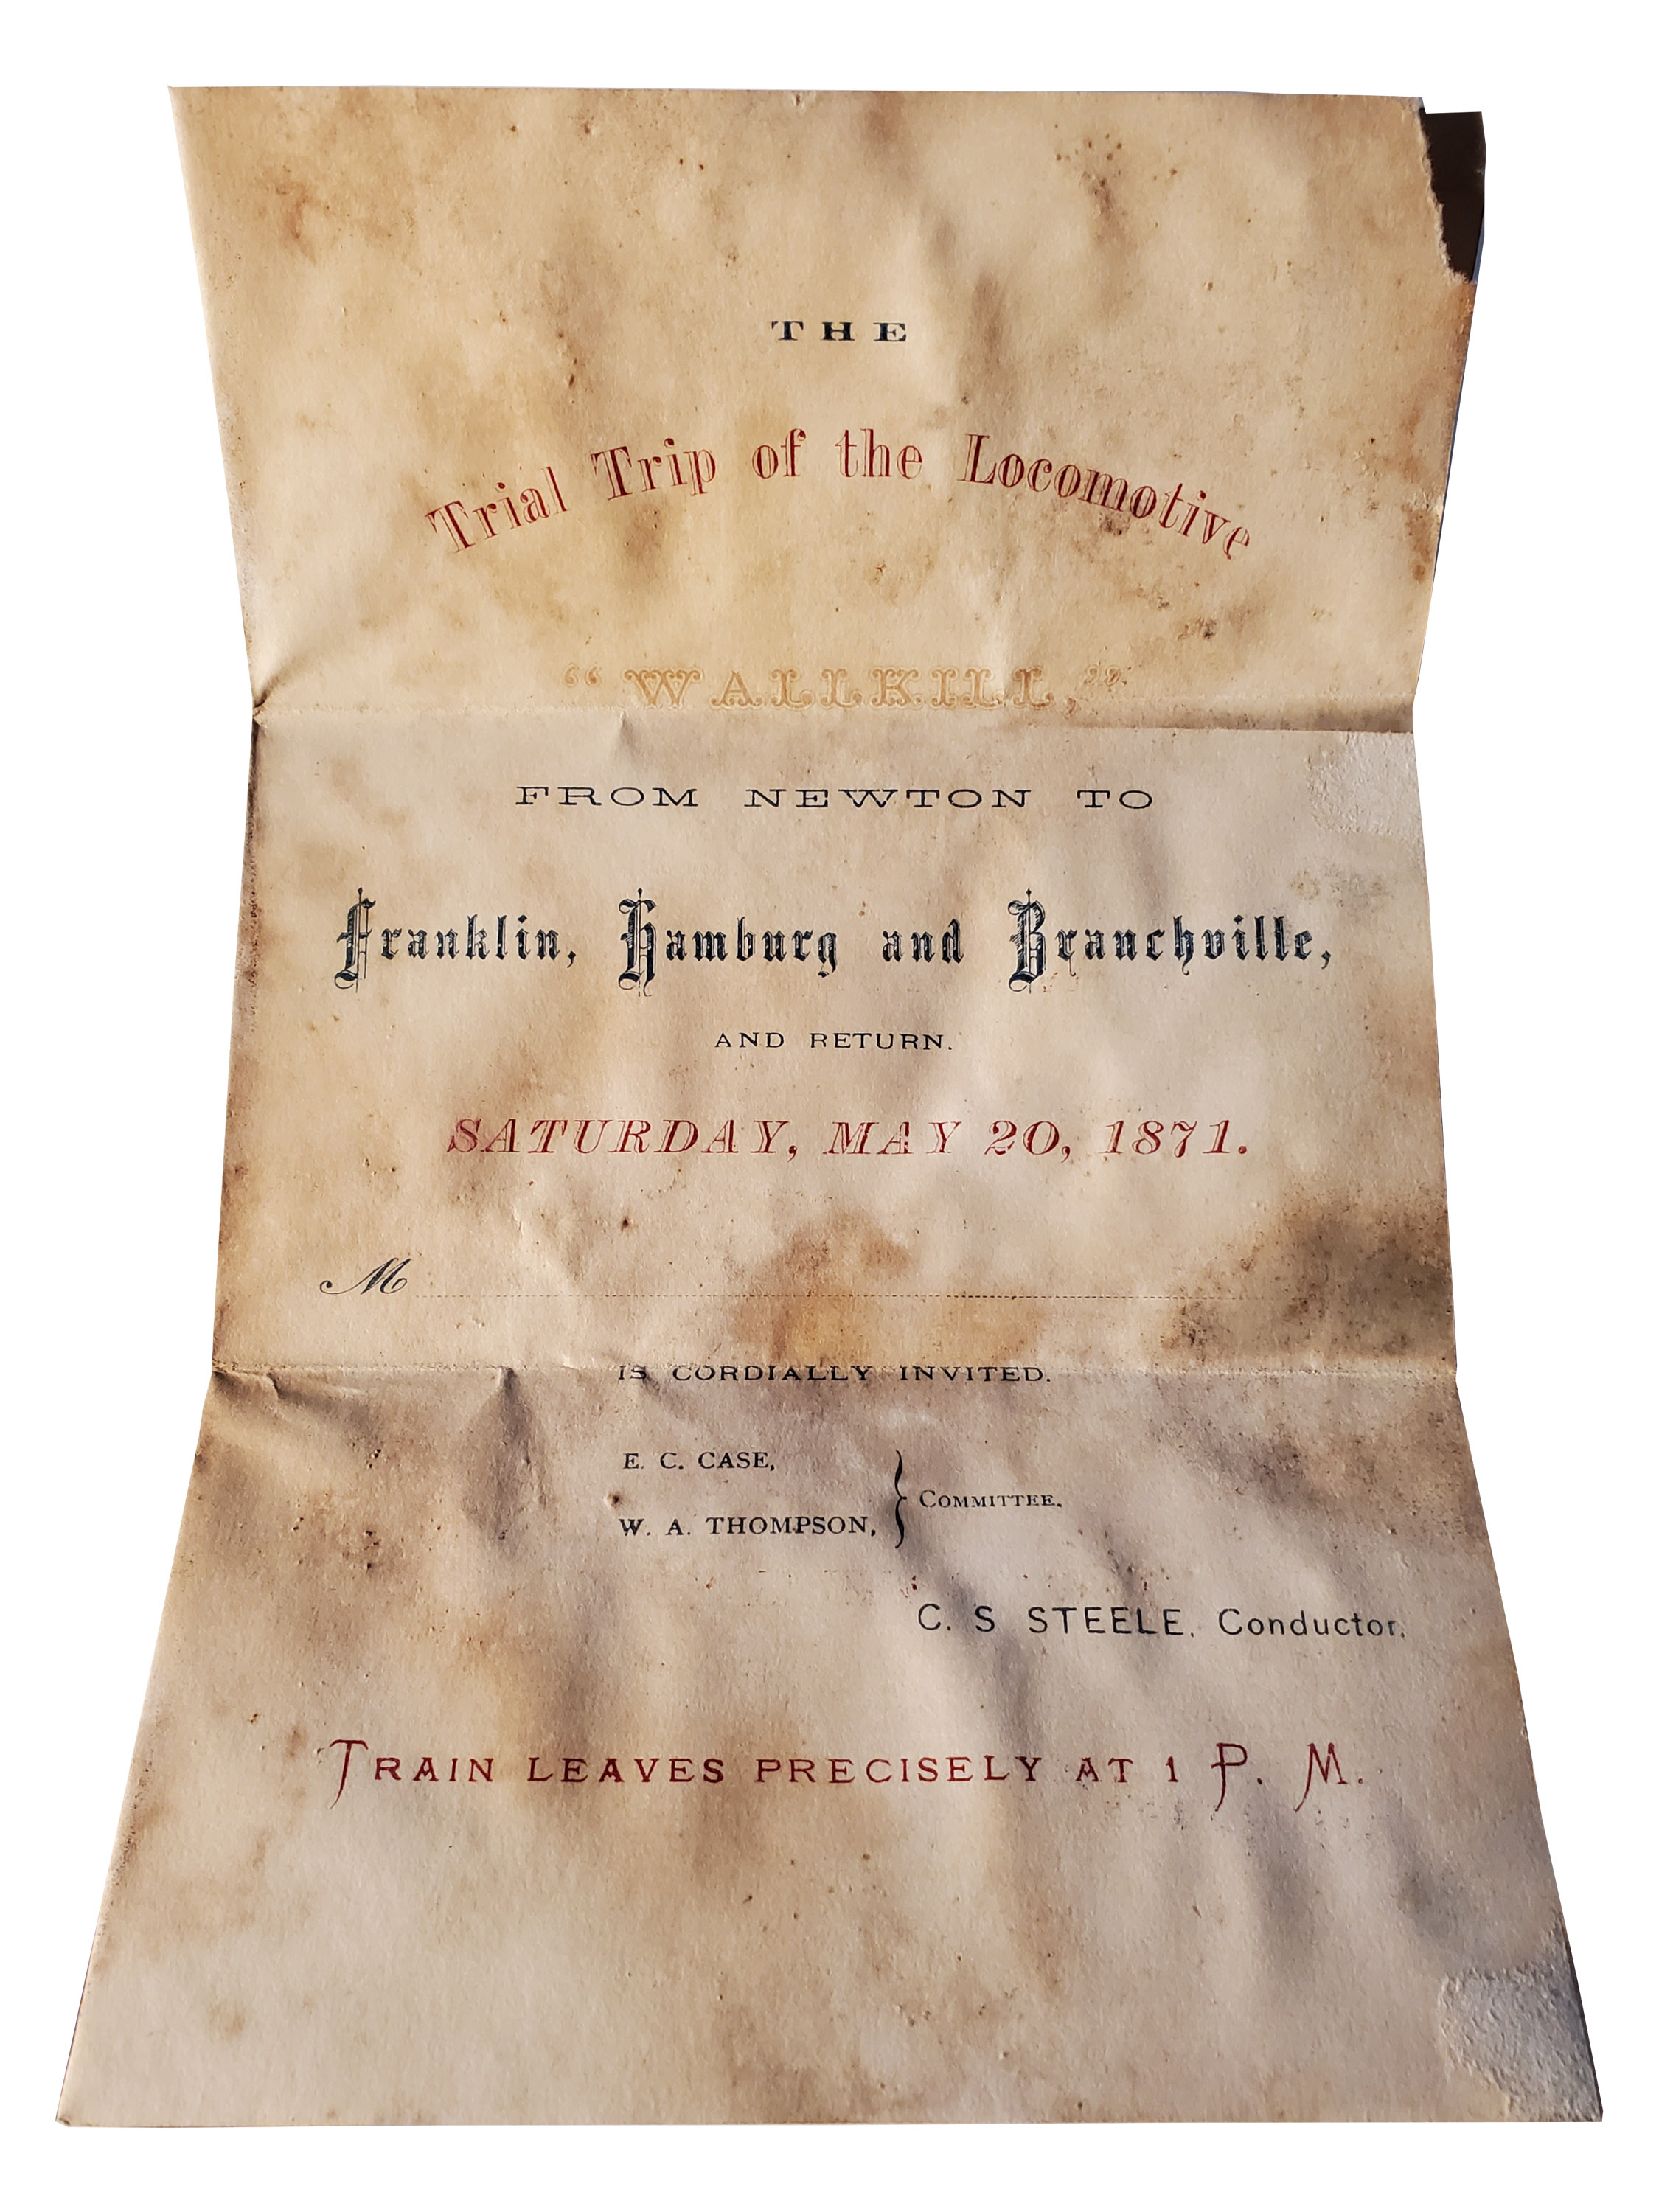 THE
Trial Trip of the Locomotive
“WALLKILL,”
FROM NEWTON TO
Franklin, Hamburg and Branchville,
AND RETURN.
SATURDAY, MAY 20, 1871.
M
IS CORDIALLY INVITED.
E. C. CASE,
W. A. THOMPSON,
} COMMITTEE.
C. S STEELE, Conductor.
TRAIN LEAVES PRECISELY AT 1 P. M.